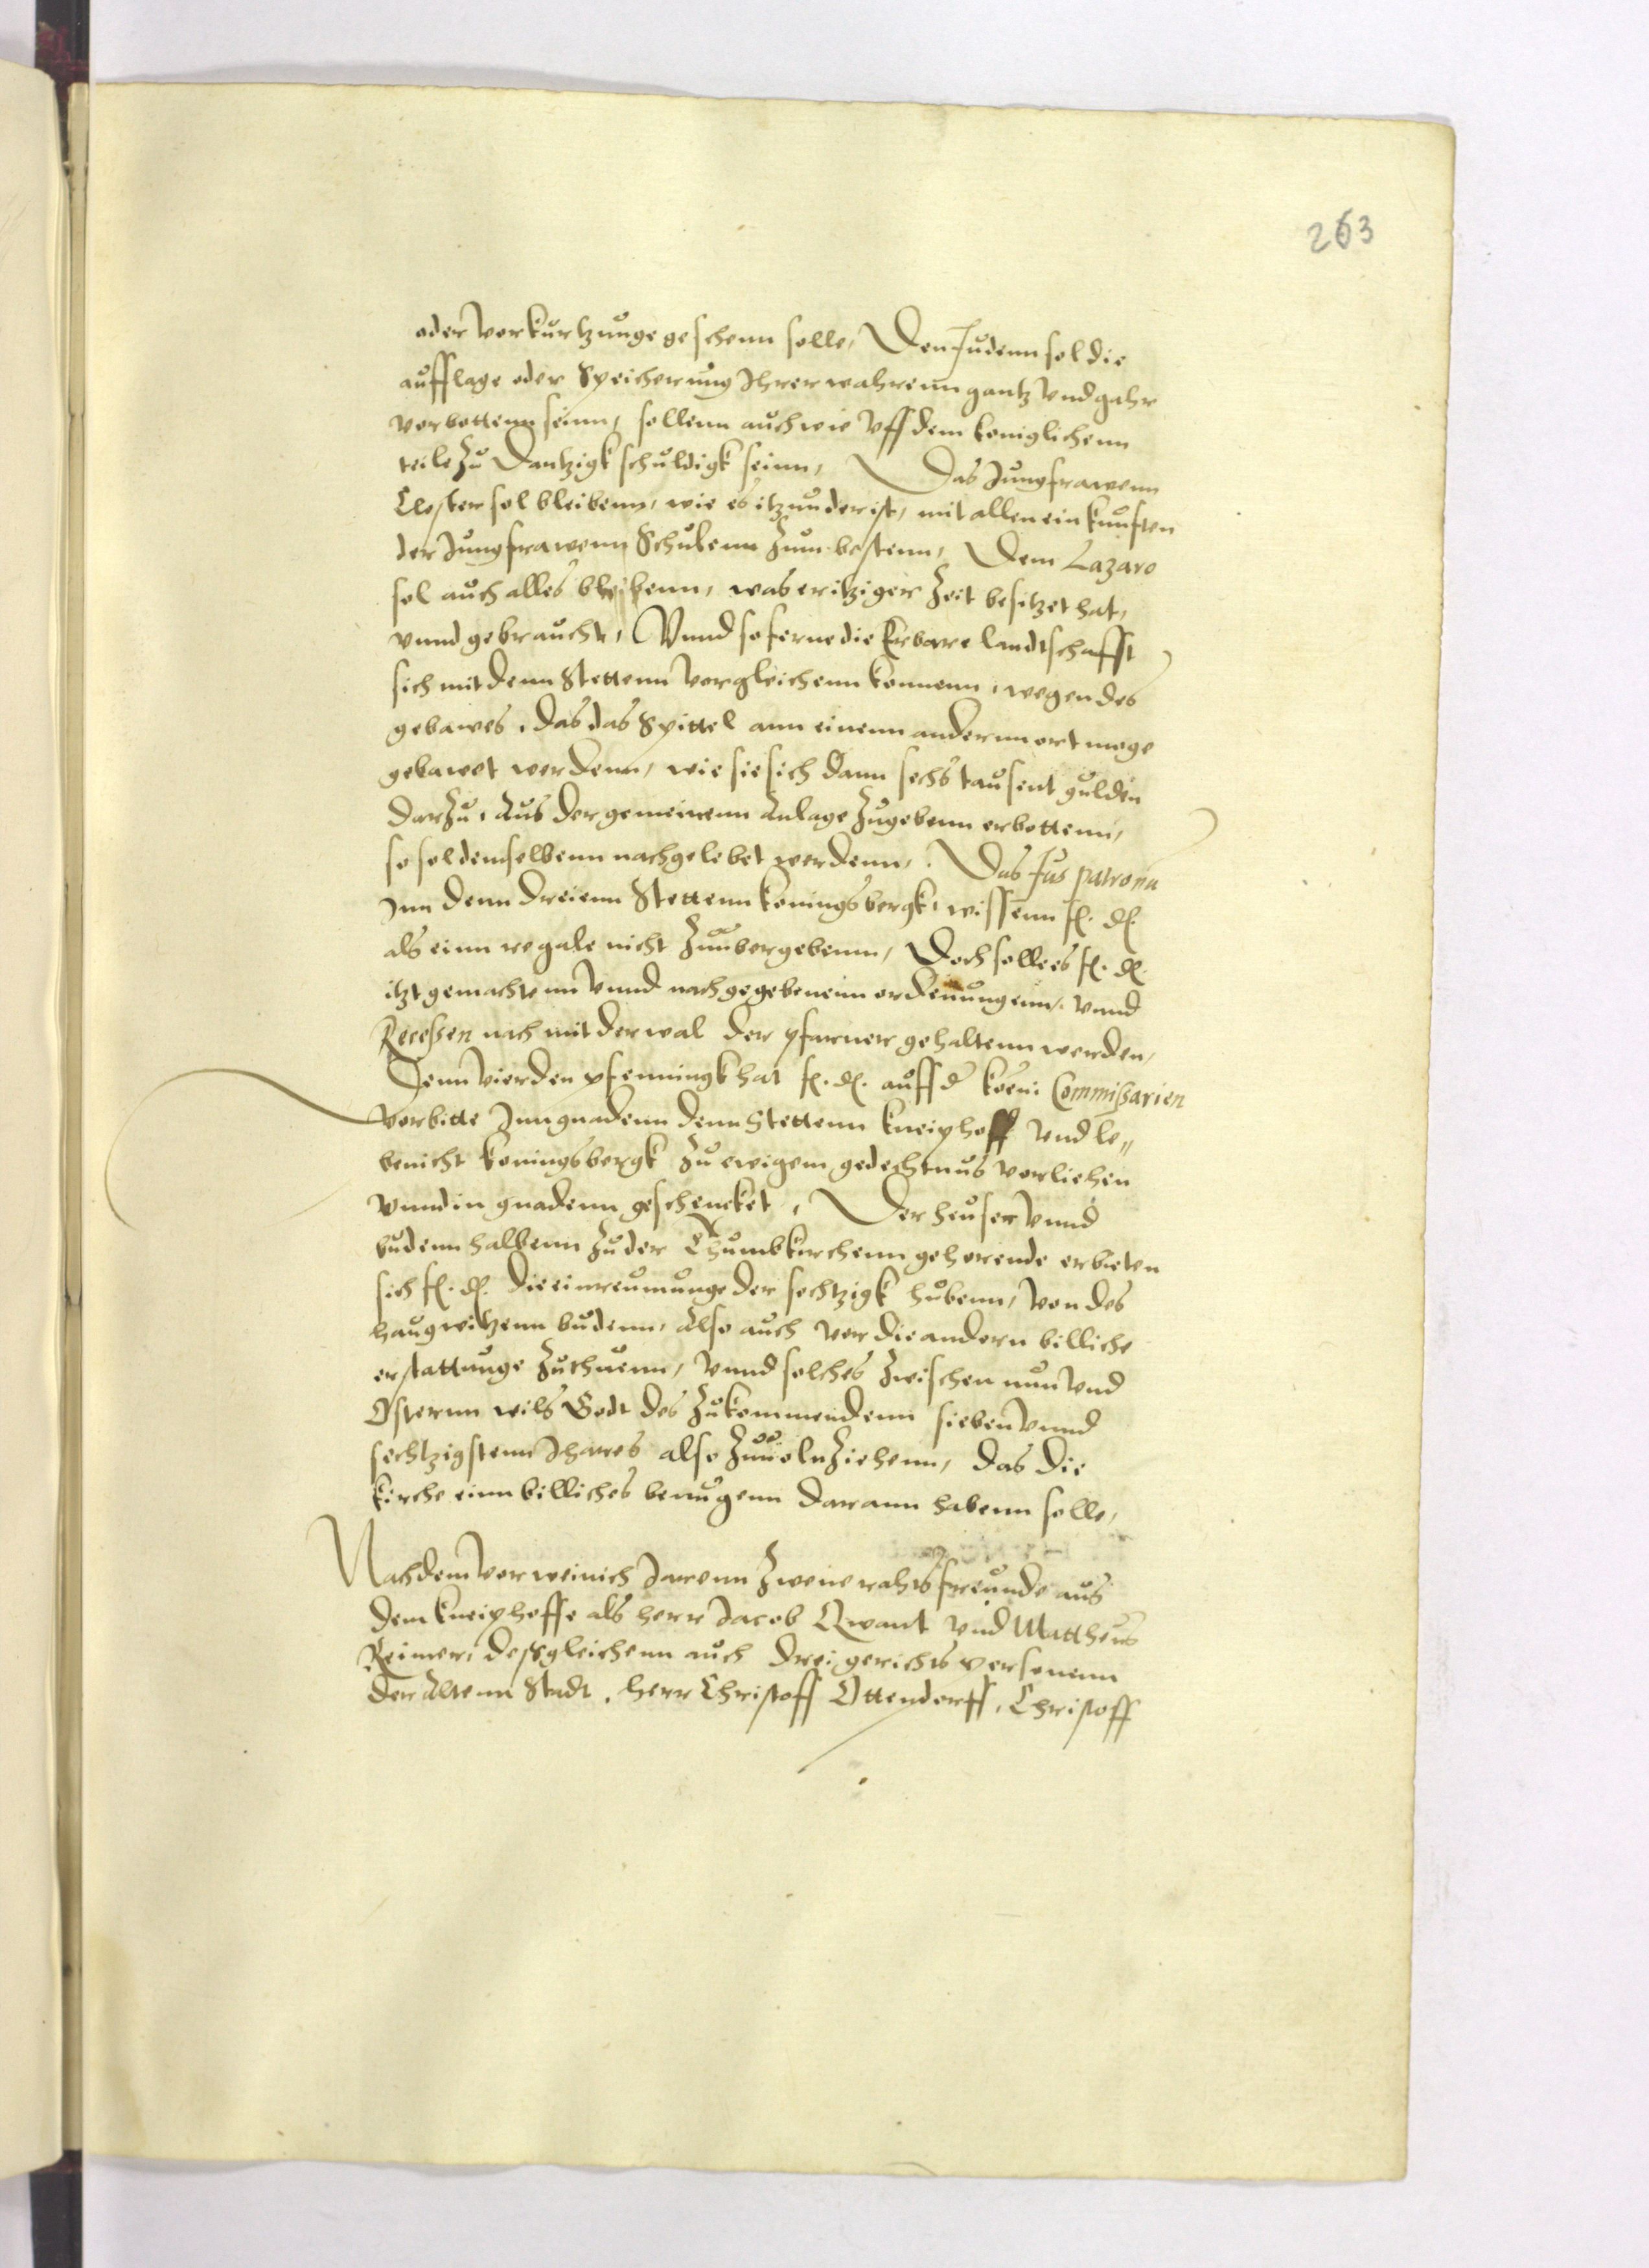 263
oder vorkurtzunge geschenn solle, Den Judenn sol die
aufflage oder Speicherung Ihrer wahrenn gantz vnd gahr
vorbottenn seinn, sollenn auch wie vff dem koniglichenn
teile zu Dantzigk schuldigk seinn, Das Jungfrawenn
Closter sol bleibenn, wie es itzunder ist, mit allen einkunften
der Jungfrawenn Schulenn zum bestenn, Dem Lazaro
sol auch alles bleibenn, was er itziger zeit besitzet hat,
vnnd gebraucht, Vnnd soferne die Erbare landtschafft
sich mit denn Stettenn vorgleichenn konnenn, wegen des
gebawes, das das Spittel ann einenn andernn ort moge
gebawet werdenn, wie sie sich dann sechs tausent gulden
darzu, aus der gemeinenn Anlage zugebenn erbottenn,
so sol demselbenn nachgelebet werdenn, Das Jus patrona
Inn denn dreienn Stettenn koningsbergk, wissenn f. d.
als einn regale nicht zuubergebenn, Doch solle es f. d.
itzt gemachtenn vnnd nachgegebenenn ordenungenn, vnnd
Recessen nach mit der wal der pfarner gehaltenn werden,
Denn vierden pfenningk hat f. d. auff d koeni: Commissarien
vorbitte Inn gnadenn denn Stettenn kneiphoff vnd le=
benicht koningsbergk zu ewigem gedechtnus vorliehen
vnnd in gnadenn geschencket, Der heuser vnnd
budenn halbenn zu der Thumbkirchenn gehorende erbieten
sich f. d. die einreumunge der sechtzigk hubenn, von des
haugwitzenn budenn, also auch vor die andern billiche
erstattunge zuthuenn, vnnd solches zwischen nun vnd
Osternn wils Godt des zukommendenn sieben vnnd
sechtzigstenn Jhares also zuuolnziehenn, das die
kirche einn billiches benugenn darann habenn solle,
Nachdem vor weinich Jarenn zwene rahtsfreunde aus
dem kneiphoffe als herr Jacob Qwant vnd Mattheus
Reimer, desgleichenn auch drei gerichts personenn
der Altenn Stadt, herr Christoff Ottendorff, Christoff